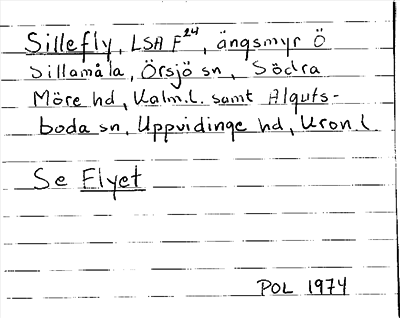 Sillefly, LSA F²⁴, ängsmyr Ö
Sillamåla, Örsjö sn, Södra
Möre hd, Kalm.l. samt Alguts-
boda sn, Uppvidinge hd, Kron.l.
Se Flyet
POL 1974